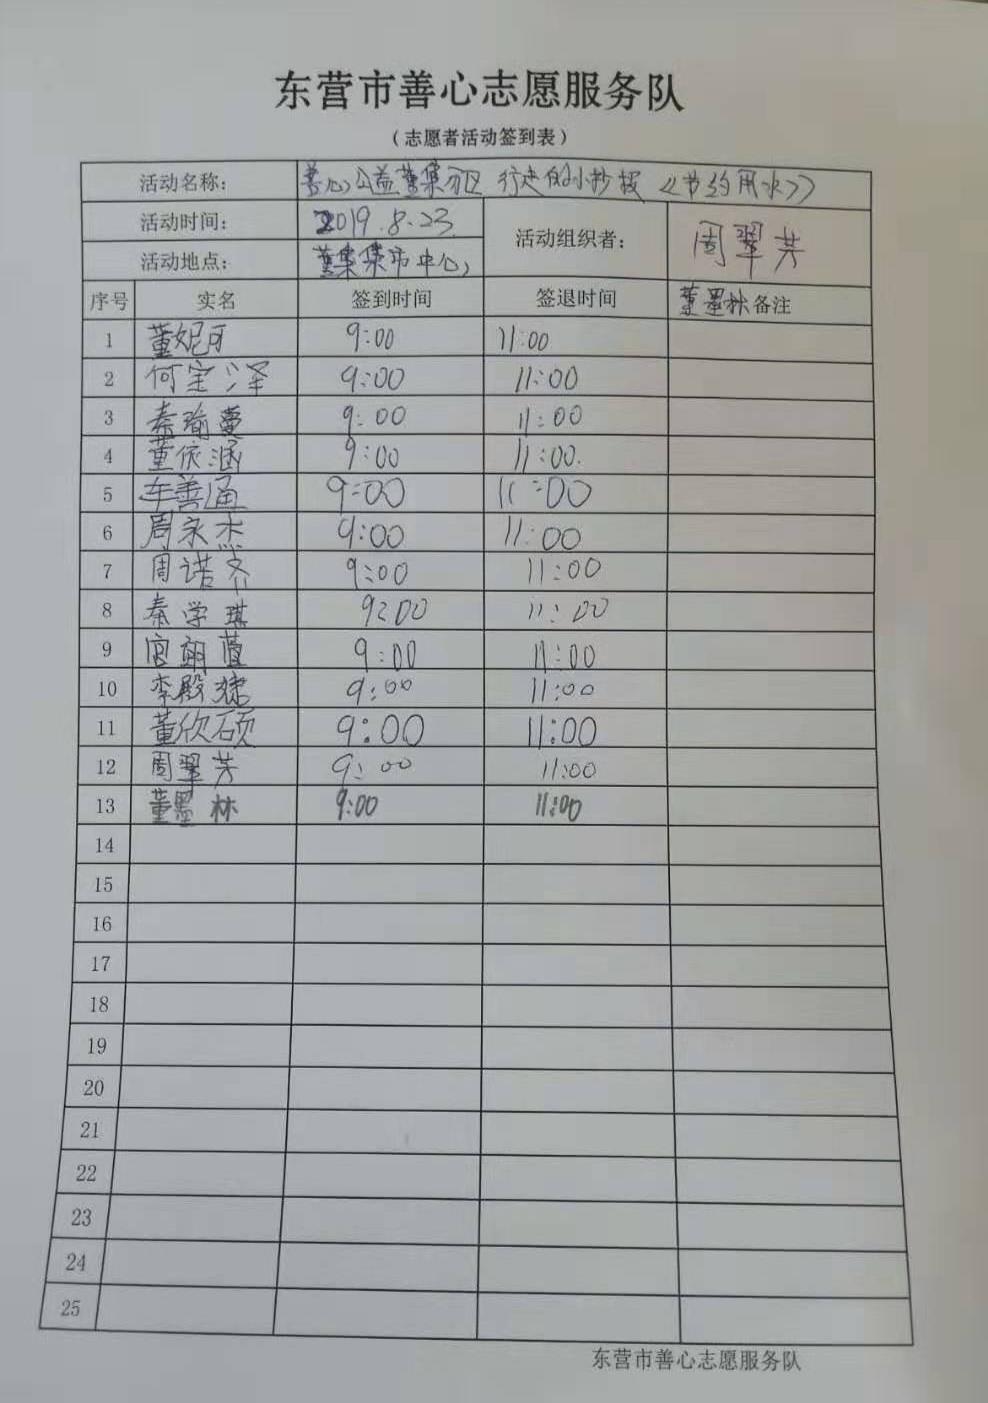 东营市善心志愿服务队
（志愿者活动签到表）
活动名称： 善心公益董集分区 行走的小抄报《节约用水》
活动时间： 2019.8.23 活动组织者： 周翠芳
活动地点： 董集集市中心
序号 实名 签到时间 签退时间 董墨林备注
1 董妮可 9:00 11:00
2 何宝泽 9:00 11:00
3 秦瑜蔓 9:00 11:00
4 董依涵 9:00 11:00.
5 车善通 9:00 11:00
6 周永杰 9:00 11:00
7 周诺齐 9:00 11:00
8 秦学琪 9:00 11:00
9 宫翊萱 9:00 11:00
10 李殿 9:00 11:00
11 董欣硕 9:00 11:00
12 周翠芳 9:00 11:00
13 董墨林 9:00 11:00
14
15
16
17
18
19
20
21
22
23
24
25
东营市善心志愿服务队